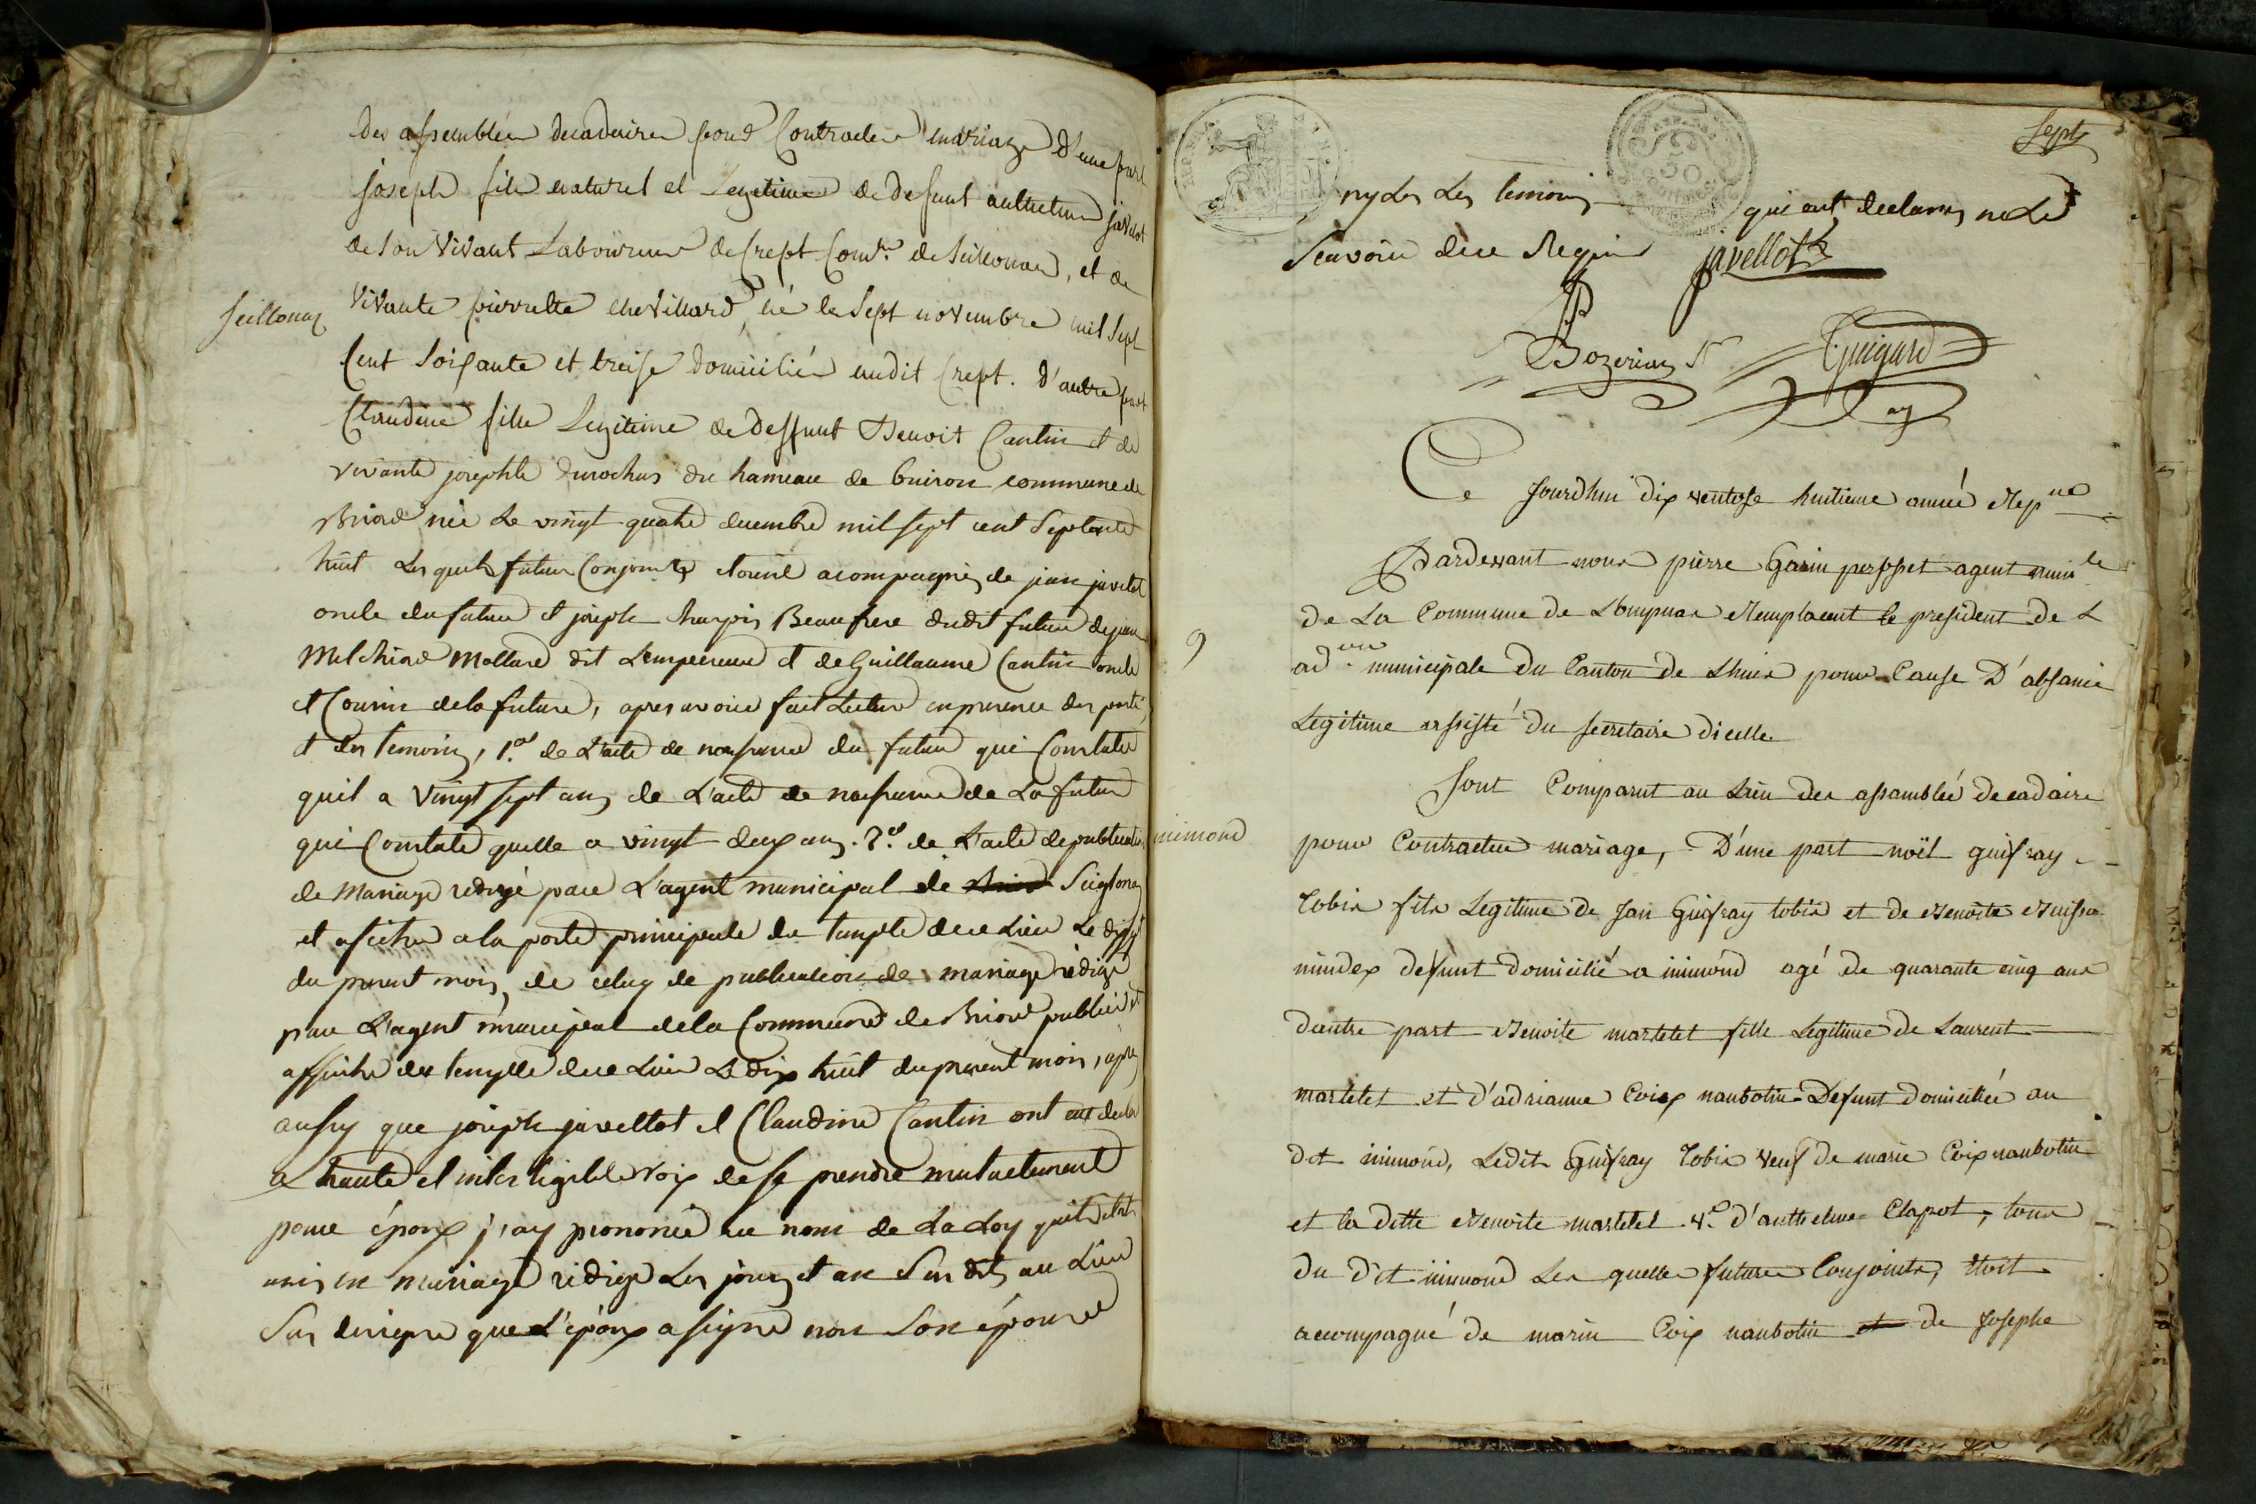 des assemblées decadaires pour Contracter mariage d'une part
joseph fils naturel et Legitime de defunt anthelme javelot
de son Vivant Laboureur de Crept Com.ne de seillonas, et de
Seillonaz
Vivante pierrette cheVillard, né le Sept novembre mil Sept
Cent Soixante et treise domicilié audit Crept. d'autre part
Claudine fille Legitime de deffunt Benoit Cantin et de
vivante josephte durochas du hameau de buiron commune de
Briord née Le vingt quatre decembre mil sept cent Septante
huit Les quels futurs Conjoints etoient acompagnés de jean javelot
oncle du futur et joseph Beaufrere dudit futur de jean
Melchiord Mollard dit L'empereur et de Guillaume Cantin oncle
et Cousin de la future, apres avoir fait Lecture en presence des parti
et des temoins, 1.o de L'acte de naissance du futur qui Constate
quil a Vingt sept ans de L'acte de naissance de La future
qui Constate quelle a vingt deux ans. 2.o de L'acte de publication
de Mariage redigé par L'agent municipal de Seiglonas
et afiché a la porte principale du temple de ce Lieu Le dix
du present mois, de celuy de publication de mariage redigé
par L'agent municipal de la Commune de Briord publié et
affiché au temple de ce Lieu Le dix huit du present mois, apres
aussy que joseph javellot et Claudine Cantin ont eut declaré
a haute et intelligible voix de se prendre mutuellement
pour époux j'ay prononcé au nom de La Loy quils etoit
unis en mariage redigé Les jours et an Sus dits au Lieu
Sus designé que L'époux a signé non Son épouse
Sept
ny les Les temoins qui ont declarés ne Le
Scavoir dece Requis javellot
Bozerian Sr Guigard
ag
Ce jourdhui dix ventose huitieme année Rep.ne
Pardevant nous pierre Garin perosset agent muni.le
de La Commune de Lompnas Remplacent le president de L
9
ad.on municipale du Canton de Lhuis pour Cause D'absance
Legitime assisté du secretaire dicelle
Sont Comparut au Lieu des assamblée decadaire
inimond
pour Contracter mariage, D'une part noël guifray
tobie fils Legitime de jan Guifray tobie et de Benoite
mindex defunt domicilié a inimond agé de quarante cinq ans
dautre part Benoite martelet fille Legitime de Laurent
martelet et d'adrianne Coix naubotin Defunt domiciliée au
dit inimond, Ledit Guifray tobie veuf de marie Coix naubotin
et la ditte Benoite martelet V.e d'anthelme Clapot, tous
du dit inimond Les quelles futures Conjoints, Etoit
accompagné de marin Coix naubotin et de Josephe